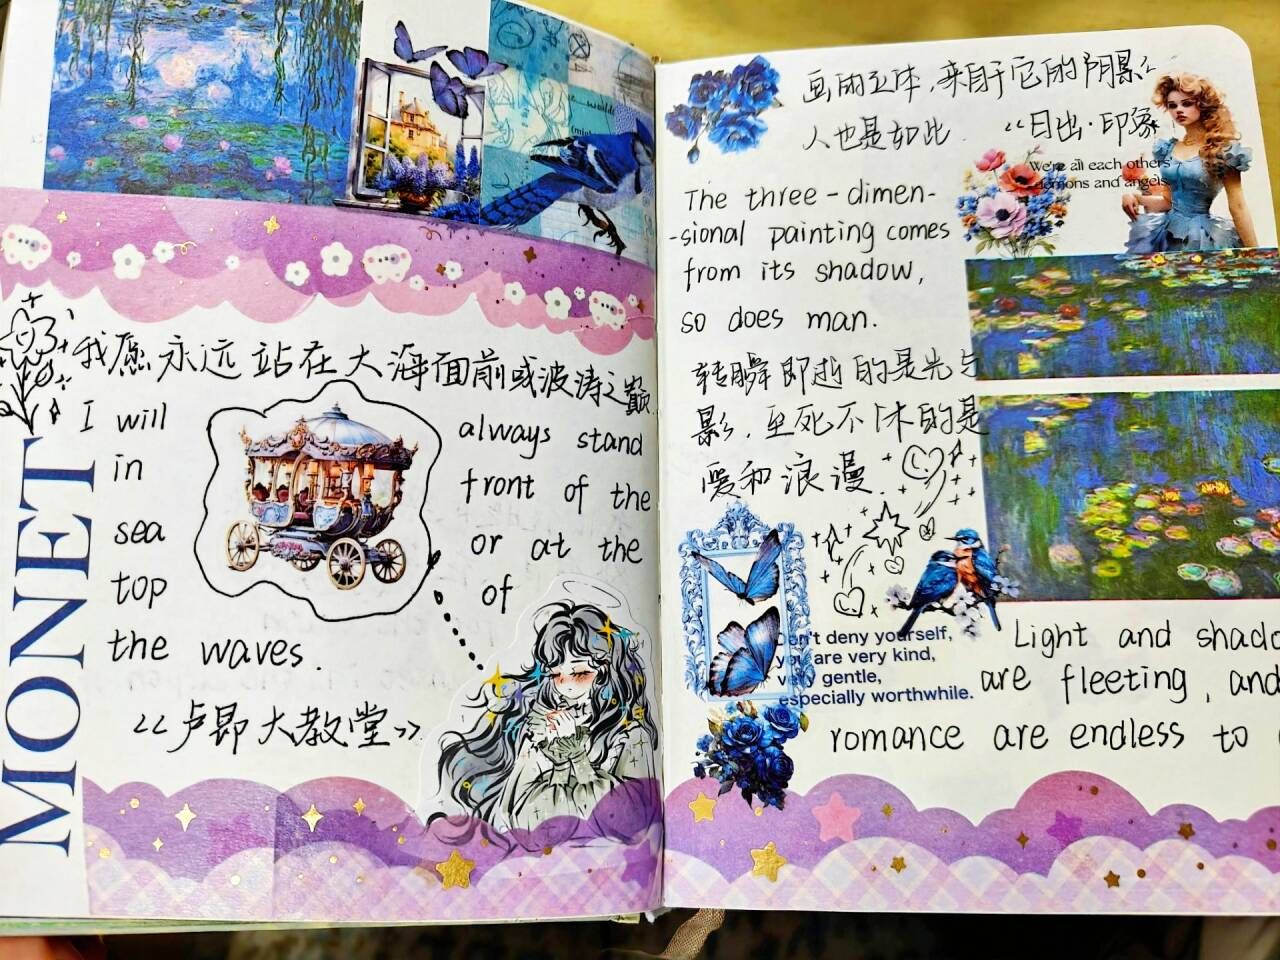 MONET
我愿永远站在大海面前或波涛之巅
I will always stand
in front of the
sea or at the
top of
the waves.
<<卢昂大教堂>>
画的立体,来自于它的阴影
人也是如此. <<日出·印象
We're all each others'
demons and angels.
The three-dimen-
-sional painting comes
from its shadow,
so does man.
转瞬即逝的是光与
影,至死不休的是
爱和浪漫.
Don't deny yourself,
you are very kind,
very gentle,
especially worthwhile.
Light and shado
are fleeting, and
romance are endless to